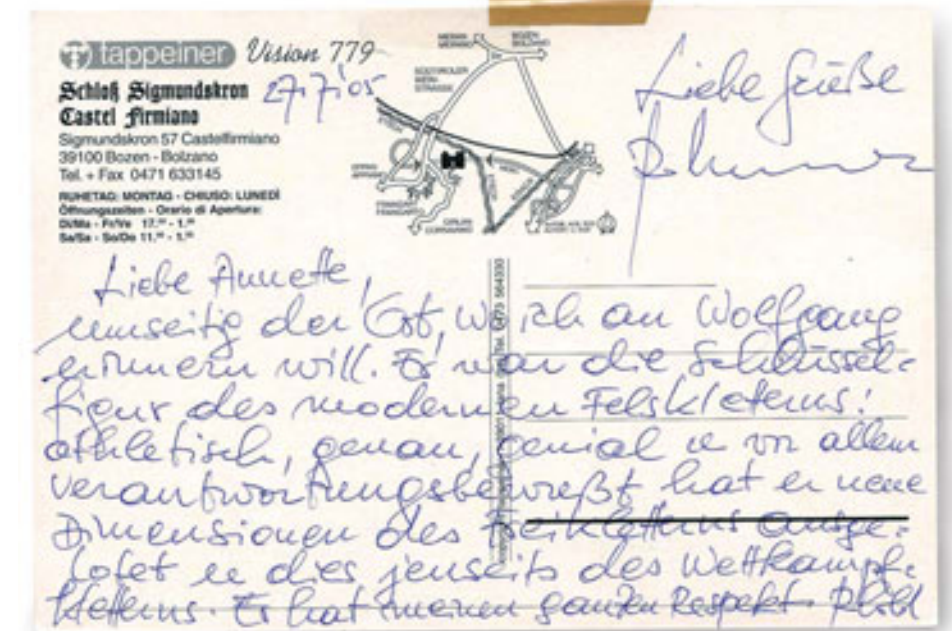 tappeiner Vision 779
27.7.'05
Schloß Sigmundskron
Castel Firmiano
Sigmundskron 57 Castelfirmiano
39100 Bozen - Bolzano
Tel. + Fax 0471 633145
RUHETAG: MONTAG - CHIUSO: LUNEDÌ
Öffnungszeiten - Orario di Apertura:
Di/Ma - Fr/Ve 17.00 - 1.00
Sa/Sa - So/Do 11.00 - 1.00
MERAN
MERANO
BOZEN
BOLZANO
SÜDTIROLER
WEIN-
STRASSE
Liebe Grüße
Liebe Annette,
umseitig der Ort, wo ich an Wolfgang
erinnern will. Er war die Schlüssel-
figur des modernen Felskletterns:
athletisch, genau, genial u vor allem
verantwortungsbewußt hat er neue
Dimensionen des Freikletterns ausge-
lotet u dies jenseits des Wettkampf-
kletterns. Er hat meinen ganzen Respekt.